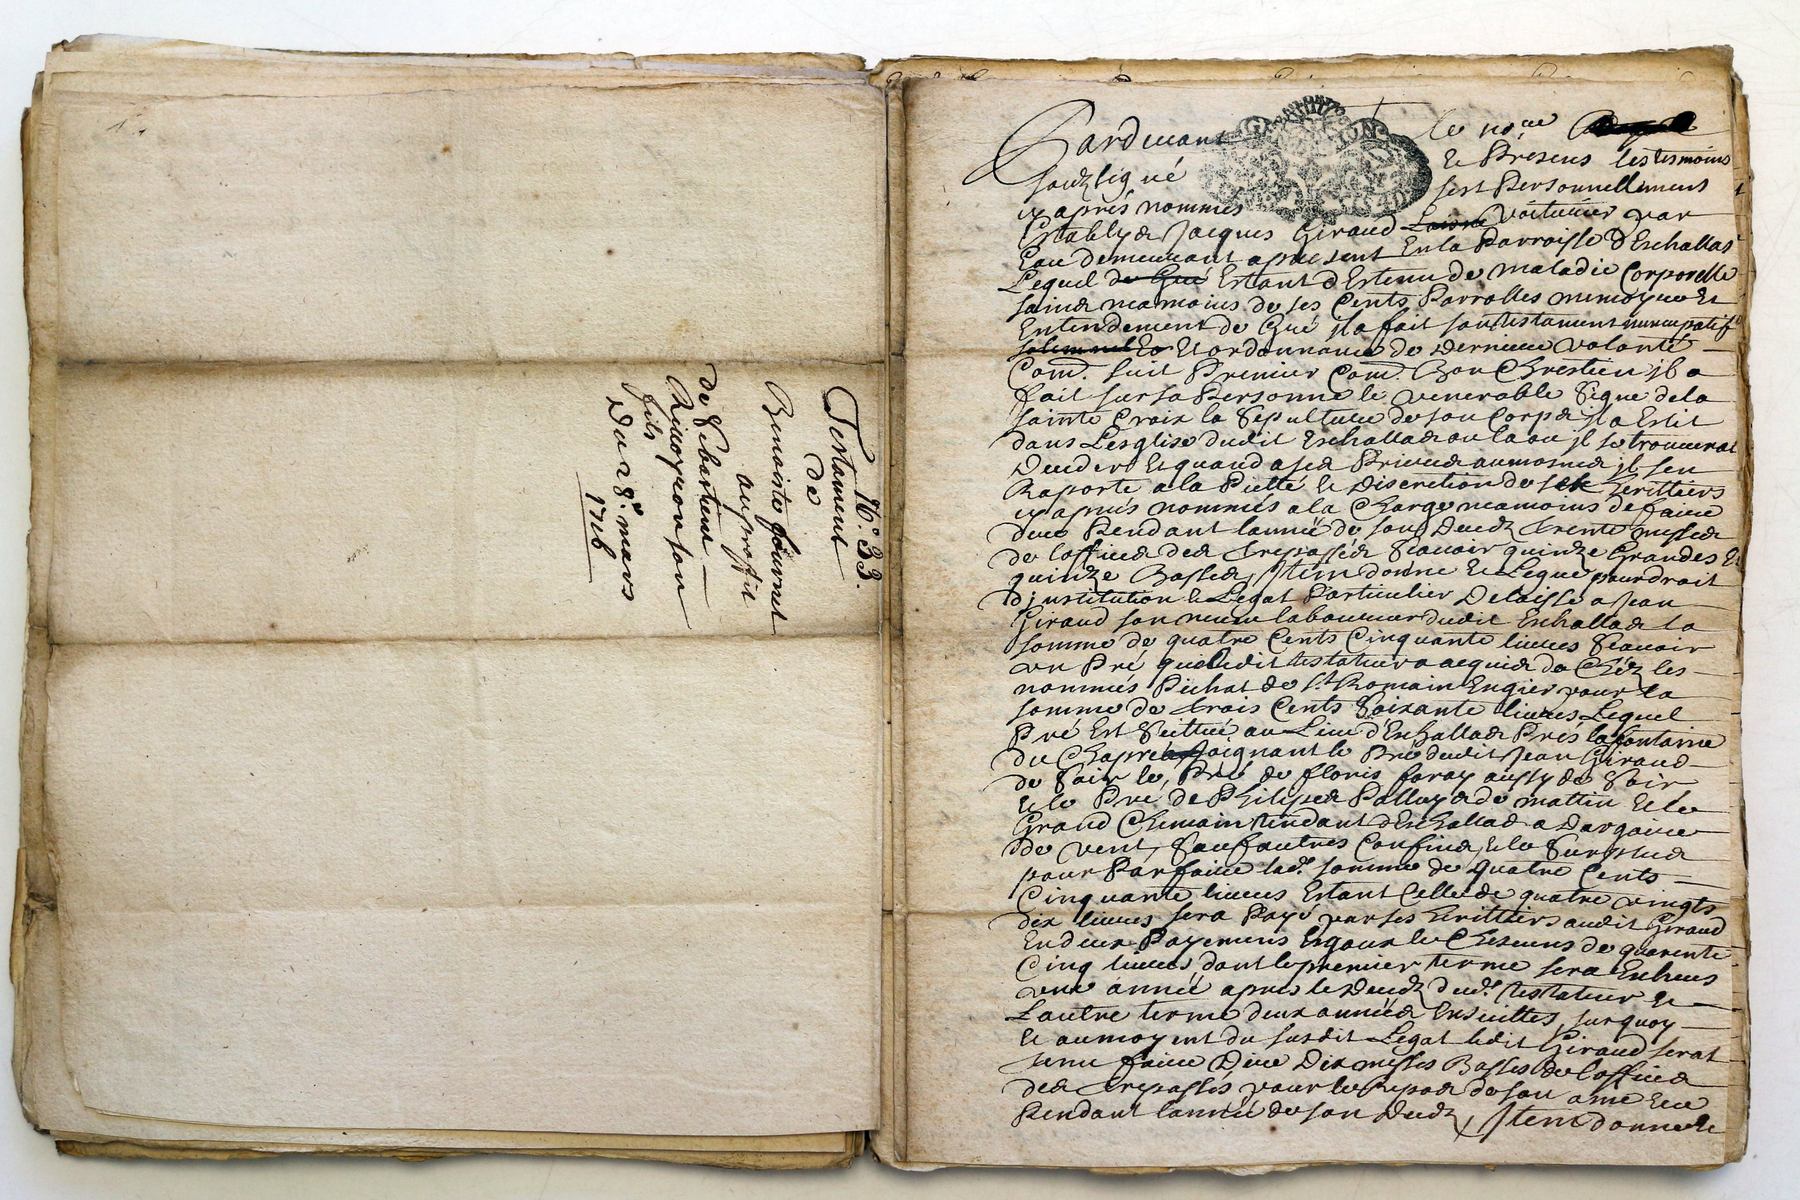 N.° 33.
Testament
de
Benoiste fournel
au proffit
de Sebastien
Rivoyron son
fils
Du 28.e mars
1716
Pardevant le no.re
souzsigné Et Presens les tesmoins
cy aprés nommés sest Personnellement
Estably Jacques Giraud voiturier par
Eau demeurant apresent En la Parroisse d'Eschallas
Lequel Estant d'Estenu de maladie Corporelle
saind neamoins de ses Cents Parrolles memoyre Et
Entendement de Gré jl a fait son testament nuncupatif
Et ordonnance de Derniere volonté
Com.e suit Premier Com.e Bon Chrestien jl a
fait sur sa Personne le venerable Signe de la
sainte Croix la Sepulture de son Corps jl a Eslit
dans Lesglise dudit Eschallas ou la ou jl se trouverat
Deceder Et quand a ses Prieres aumosnes jl sen
Raporte a la Pietté Et Discretion de ses heritiers
cy aprés nommés a la Charge neamoins de faire
dire Pendant lannée de son Decedz trente messes
de loffice des trepassés Scavoir quinze Grandes Et
quinze Basses, Jtem donne Et Legue pour droit
d'jnstitution Et Legat Particulier Delaisse a Jean
Giraud son neveu laboureur dudit Eschallas la
somme de quatre Cents Cinquante livres Scavoir
un Pré que Ledit testateur a acquis de Chéz les
nommés Pichat de S.t Romain Engier pour la
somme de trois Cents Soixante livres Lequel
Pré Est Scittué au Lieu d'Eschallas Prés la fontaine
du Joignant le Pré dudit Jean Giraud
de Soir le Pré de floris foray aussy de Soir
Et le Pré de Philipes Palluy de mattin Et le
Grand Chemain tendant d'Eschallas a Dargoire
de vent, Sauf autres Confins, Et le Surplus
pour Parfaire lad.e somme de quatre Cents
Cinquante livres Estant Celle de quatre vingts
dix livres sera Payé par ses heritiers audit Giraud
En deux Payemens Esgaux le Chescuns de quarente
Cinq livres, dont le premier terme sera Escheus
une année aprés le Decedz dud.t testateur Et
Lautre terme deux années Ensuittes, surquoy
Et au moyent du susdit Legat ledit Giraud serat
tenu faire Dire Dix messes Basses de loffice
des trepassés pour le Repos de son ame Et ce
Pendant lannée de son Decedz, Jtem donne Et